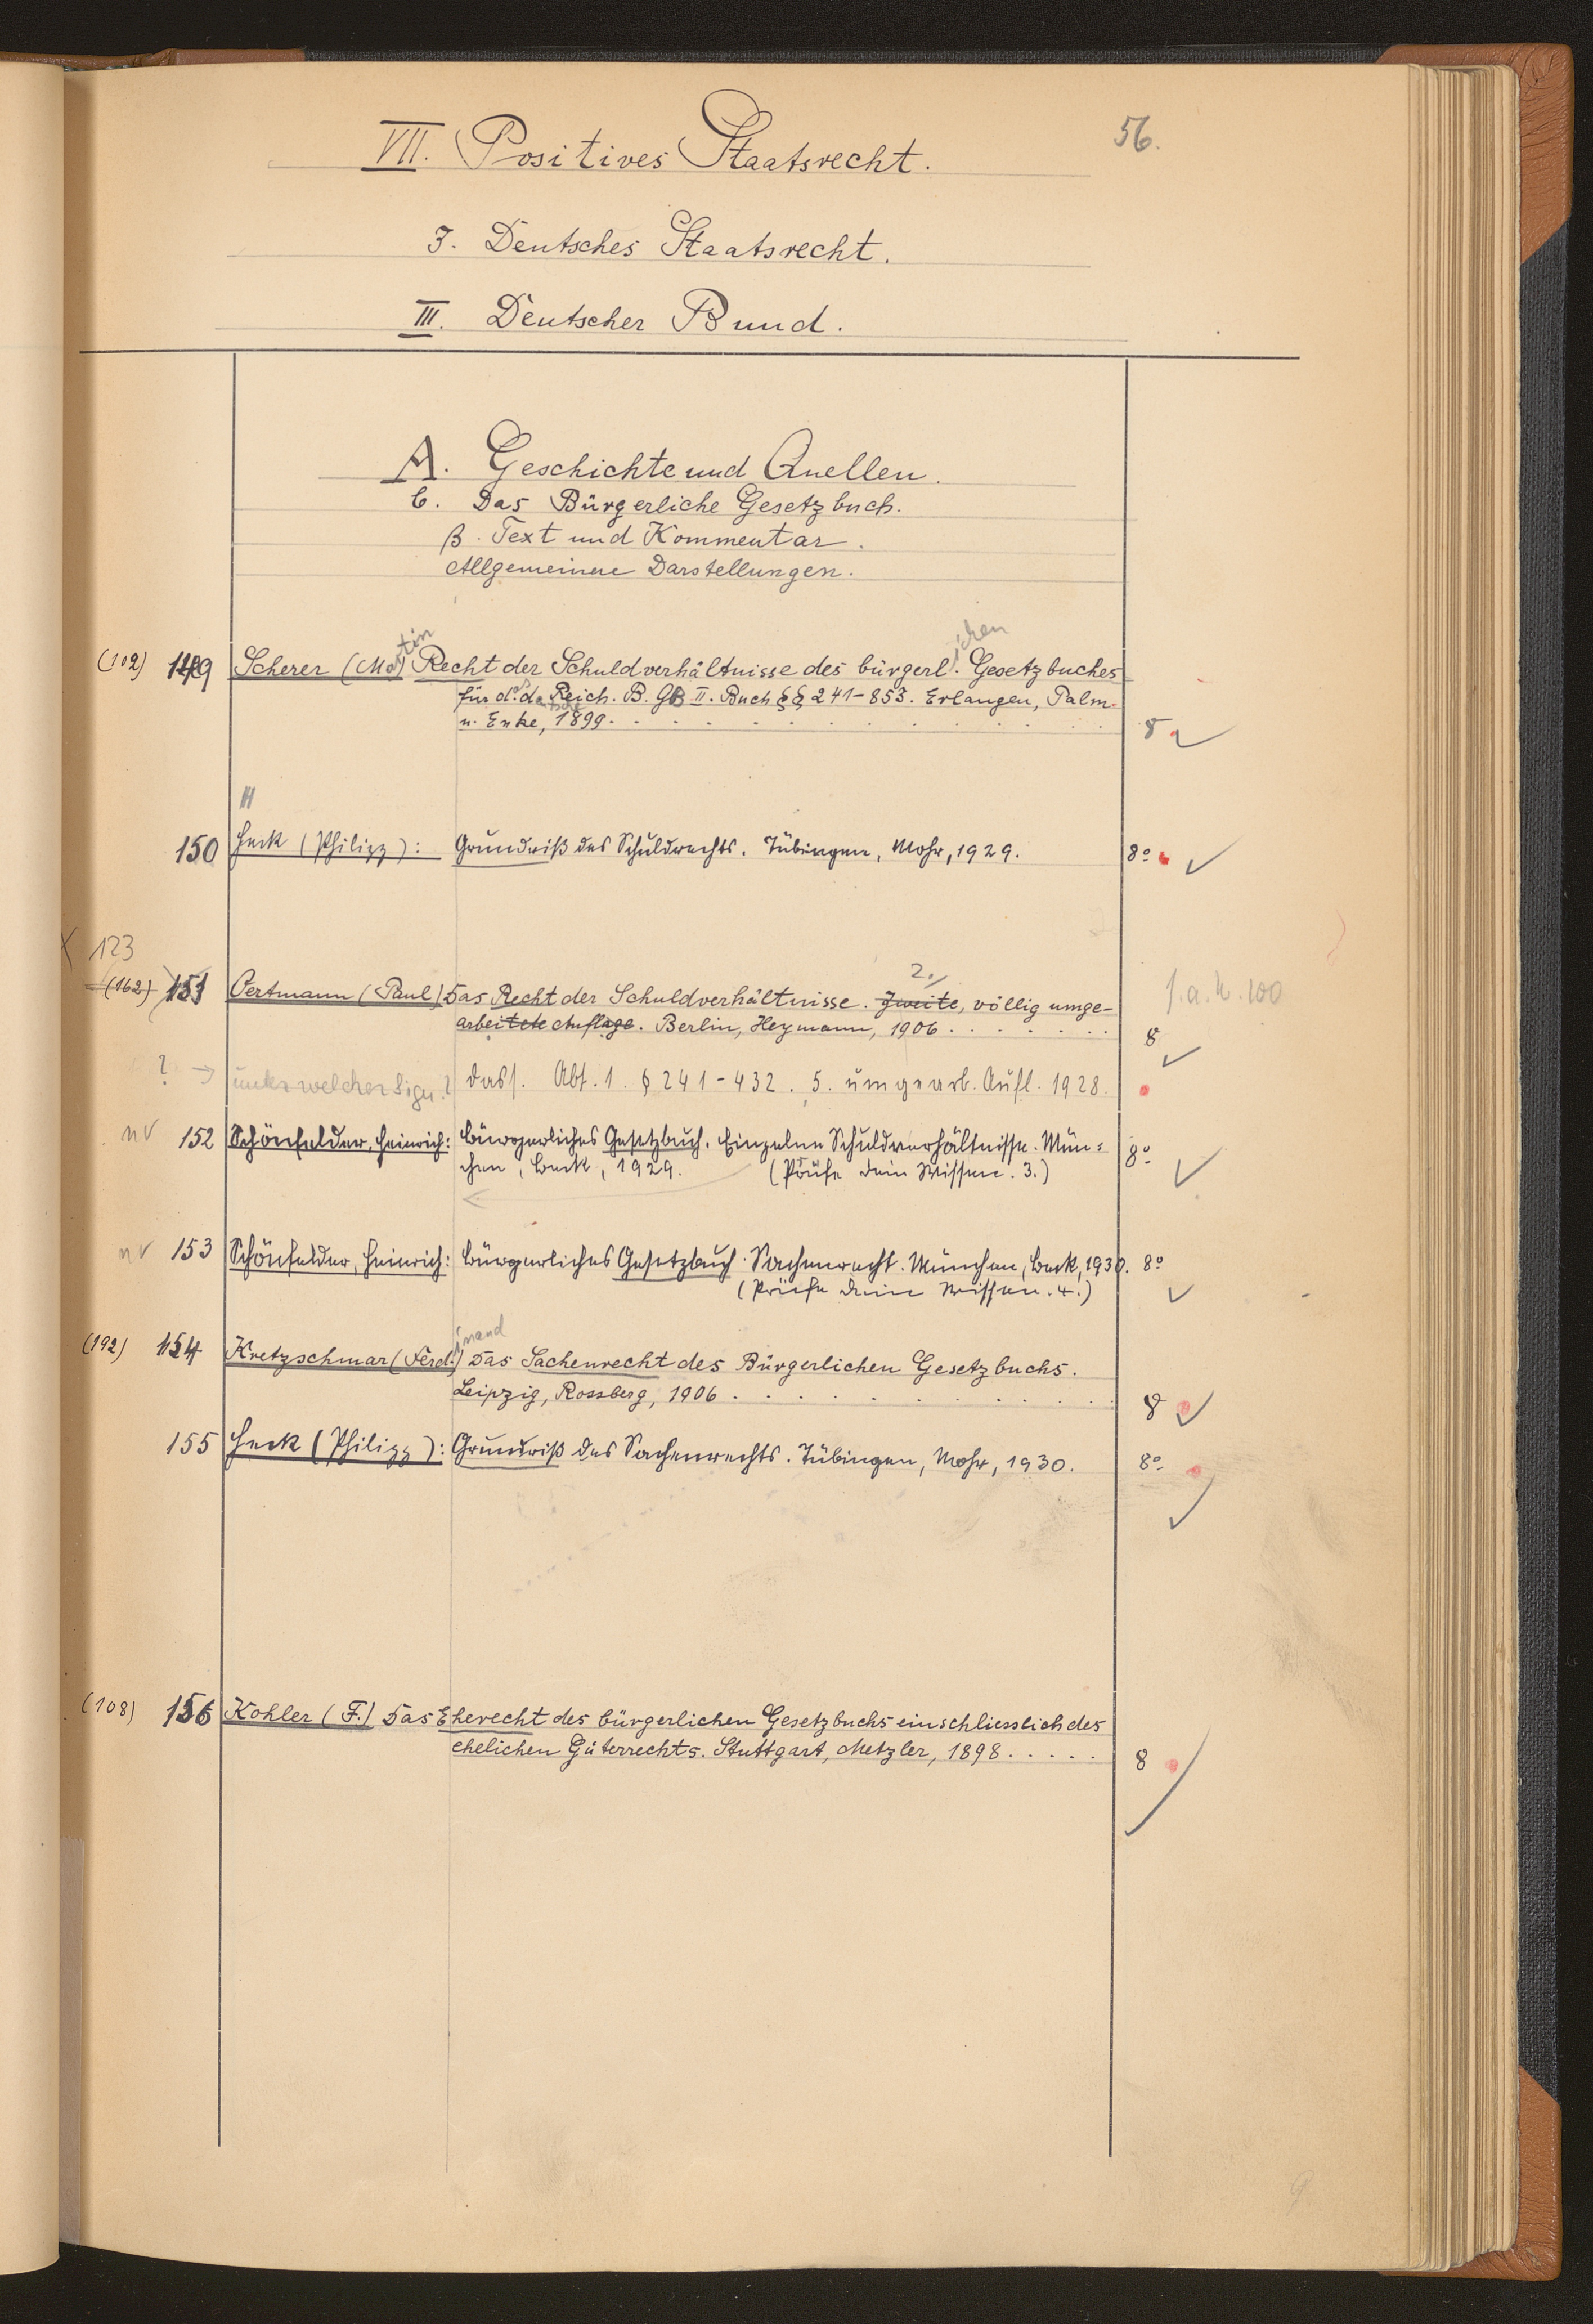 56.
VII. Positives Staatsrecht.
J. Deutsches Staatsrecht.
III. Deutscher Bund.
A. Geschichte und Quellen.
C. Das Bürgerliche Gesetzbuch.
β. Text und Kommentar.
Allgemeinere Darstellungen.
(102) 149 Scherer (Martin) Recht der Schuldverhältnisse des bürgerlichen Gesetzbuches
für das deutsche Reich. B. GB II. Buch §§ 241-853. Erlangen, Palm
u. Enke, 1899. 8
H
150 Heck (Philipp): Grundriß des Schuldrechts. Tübingen, Mohr, 1929. 8°
123
(162) 151 Oertmann (Paul) Das Recht der Schuldverhältnisse. 2. Zweite, völlig umge-
arbeitete Auflage. Berlin, Heymann, 1906. 8
f. a. h. 100
? → unter welcher Sign.? dass. Abt. 1. § 241-432. 5. umgearb. Aufl. 1928.
nv 152 Schönfelder, Heinrich: Bürgerliches Gesetzbuch. Einzelne Schuldverhältnisse. Mün=
chen, Beck, 1929. (Prüfe dein Wissen. 3.) 8°
nv 153 Schönfelder, Heinrich: Bürgerliches Gesetzbuch. Sachenrecht. München, Beck, 1930. 8°
(Prüfe dein Wissen. 4.)
(192) 154 Kretzschmar (Ferdinand) Das Sachenrecht des Bürgerlichen Gesetzbuchs.
Leipzig, Rossberg, 1906. 8
155 Heck (Philipp): Grundriß des Sachenrechts. Tübingen, Mohr, 1930. 8°
(108) 156 Kohler (F.) Das Eherecht des bürgerlichen Gesetzbuchs einschliesslich des
ehelichen Güterrechts. Stuttgart, Metzler, 1898. 8